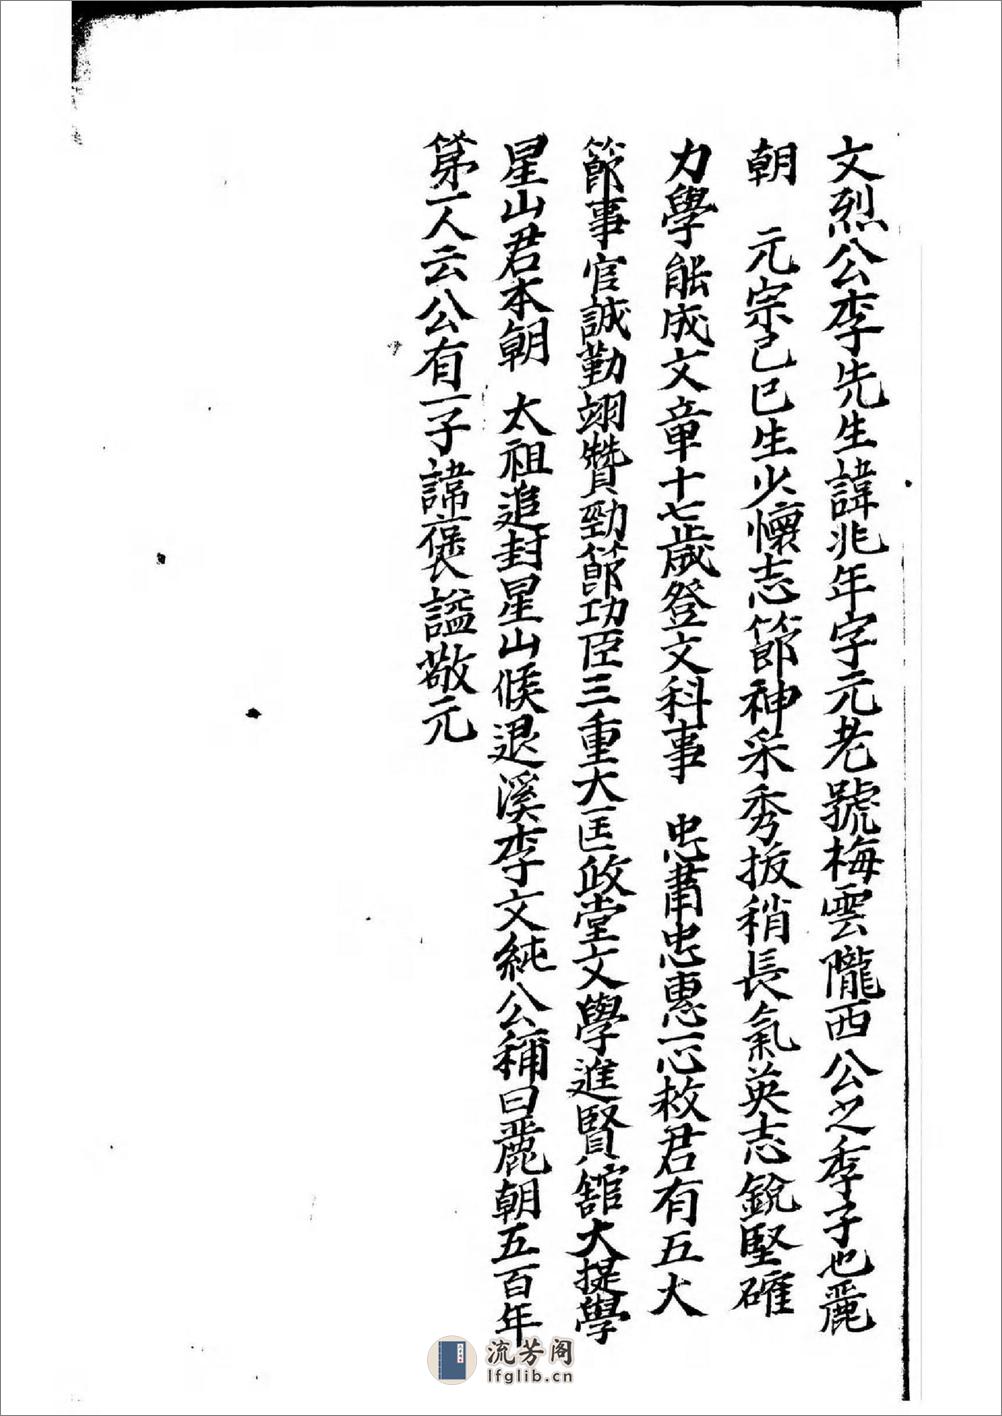 文烈公李先生諱兆年字元老號梅雲隴西公之季子也麗
朝 元宗己巳生少懷志節神采秀拔稍長氣英志銳堅確
力學能成文章十七歲登文科事 忠肅忠惠一心救君有五大
節事官誠勤翊贊勁節功臣三重大匡政堂文學進賢舘大提學
星山君本朝 太祖追封星山候退溪李文純公稱曰麗朝五百年
第一人云公有一子諱褒謚敬元
流芳阁
lfglib.cn